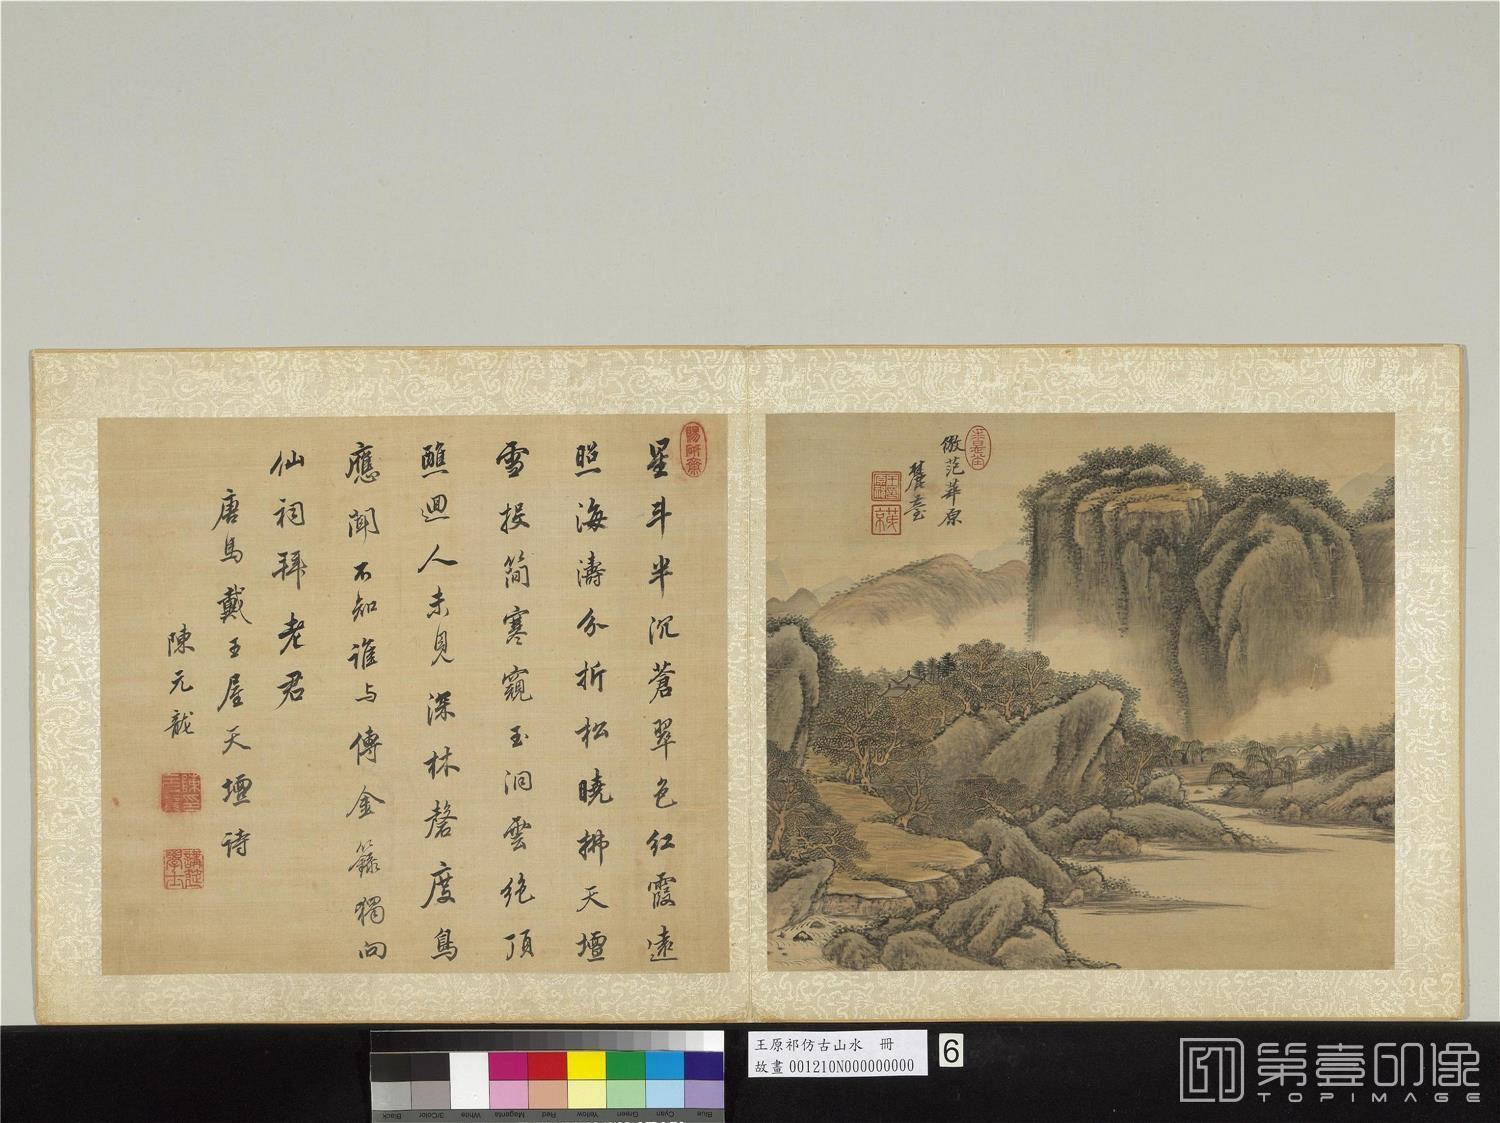 星斗半沉蒼翠色紅霞遠
照海濤分折松曉拂天壇
雪投簡寒窺玉洞雲絶頂
醮迴人未見深林磬度鳥
應聞不知誰与傳金籙獨向
仙祠拜老君
唐馬戴王屋天壇詩
陳元龍
倣范華原
麓臺
王原祁仿古山水 冊
故畫 001210N000000000
6
Black
3/Color
White
Magenta
Red
Yellow
Green
Cyan
Blue
第壹印像
TOPIMAGE